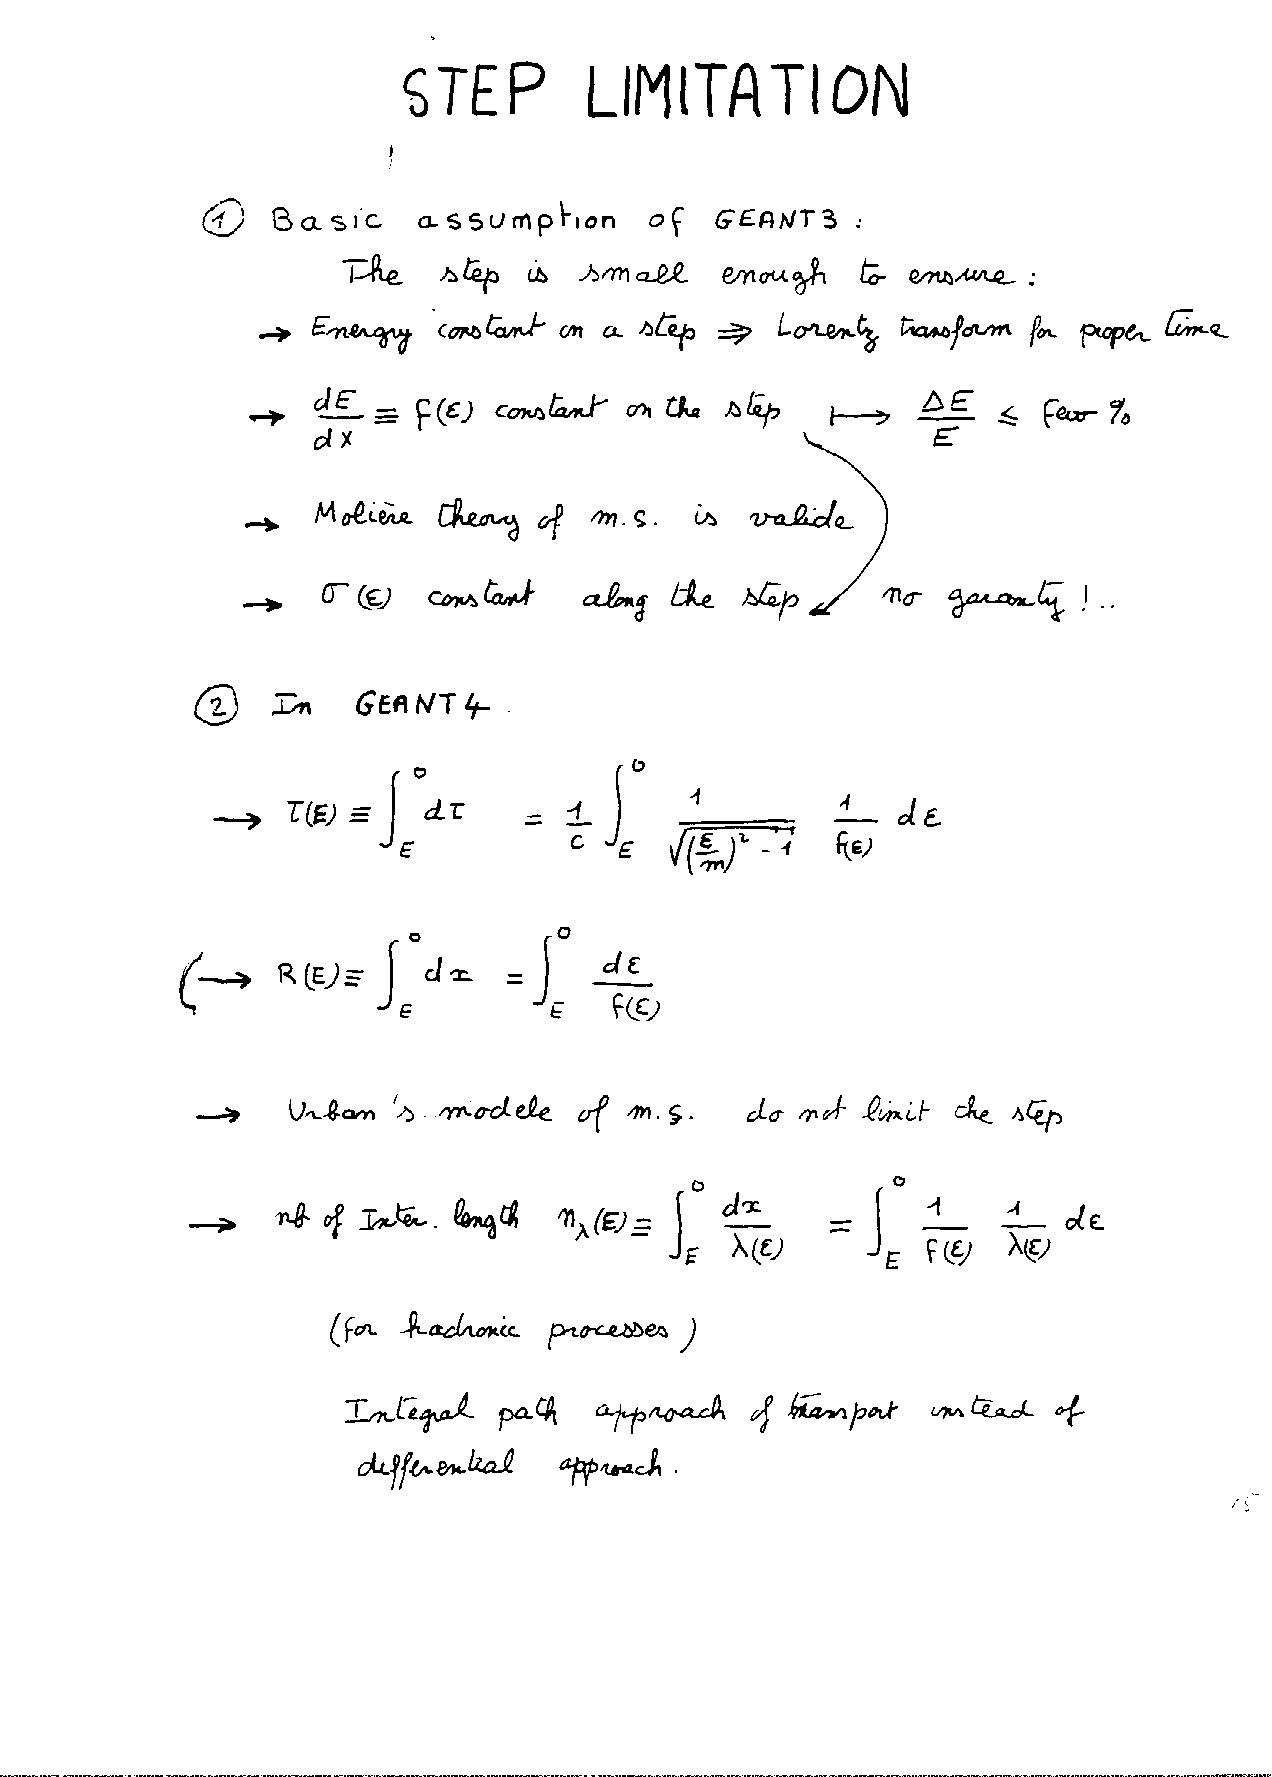 STEP LIMITATION
① Basic assumption of GEANT3 :
The step is small enough to ensure :
→ Energy constant on a step ⇒ Lorentz transform for proper time
→ dE/dx ≡ f(ε) constant on the step ↦ ΔE/E ≤ few %
→ Molière theory of m.s. is valide
→ σ(ε) constant along the step no garanty !..
② In GEANT4
→ τ(E) ≡ ∫_E^0 dτ = 1/c ∫_E^0 1/√((ε/m)² - 1) 1/f(ε) dε
(→ R(E) ≡ ∫_E^0 dx = ∫_E^0 dε/f(ε)
→ Urban's modele of m.s. do not limit the step
→ nb of Inter. length n_λ(E) ≡ ∫_E^0 dx/λ(ε) = ∫_E^0 1/f(ε) 1/λ(ε) dε
(for hadronic processes)
Integral path approach of transport instead of
differential approach.
15